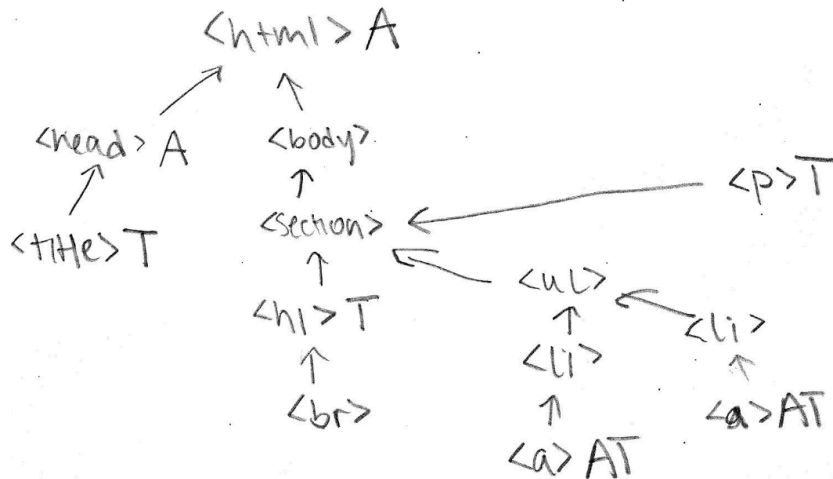 <html> A
<head> A
<body>
<p> T
<title> T
<section>
<ul>
<h1> T
<li>
<li>
<br>
<a> AT
<a> AT